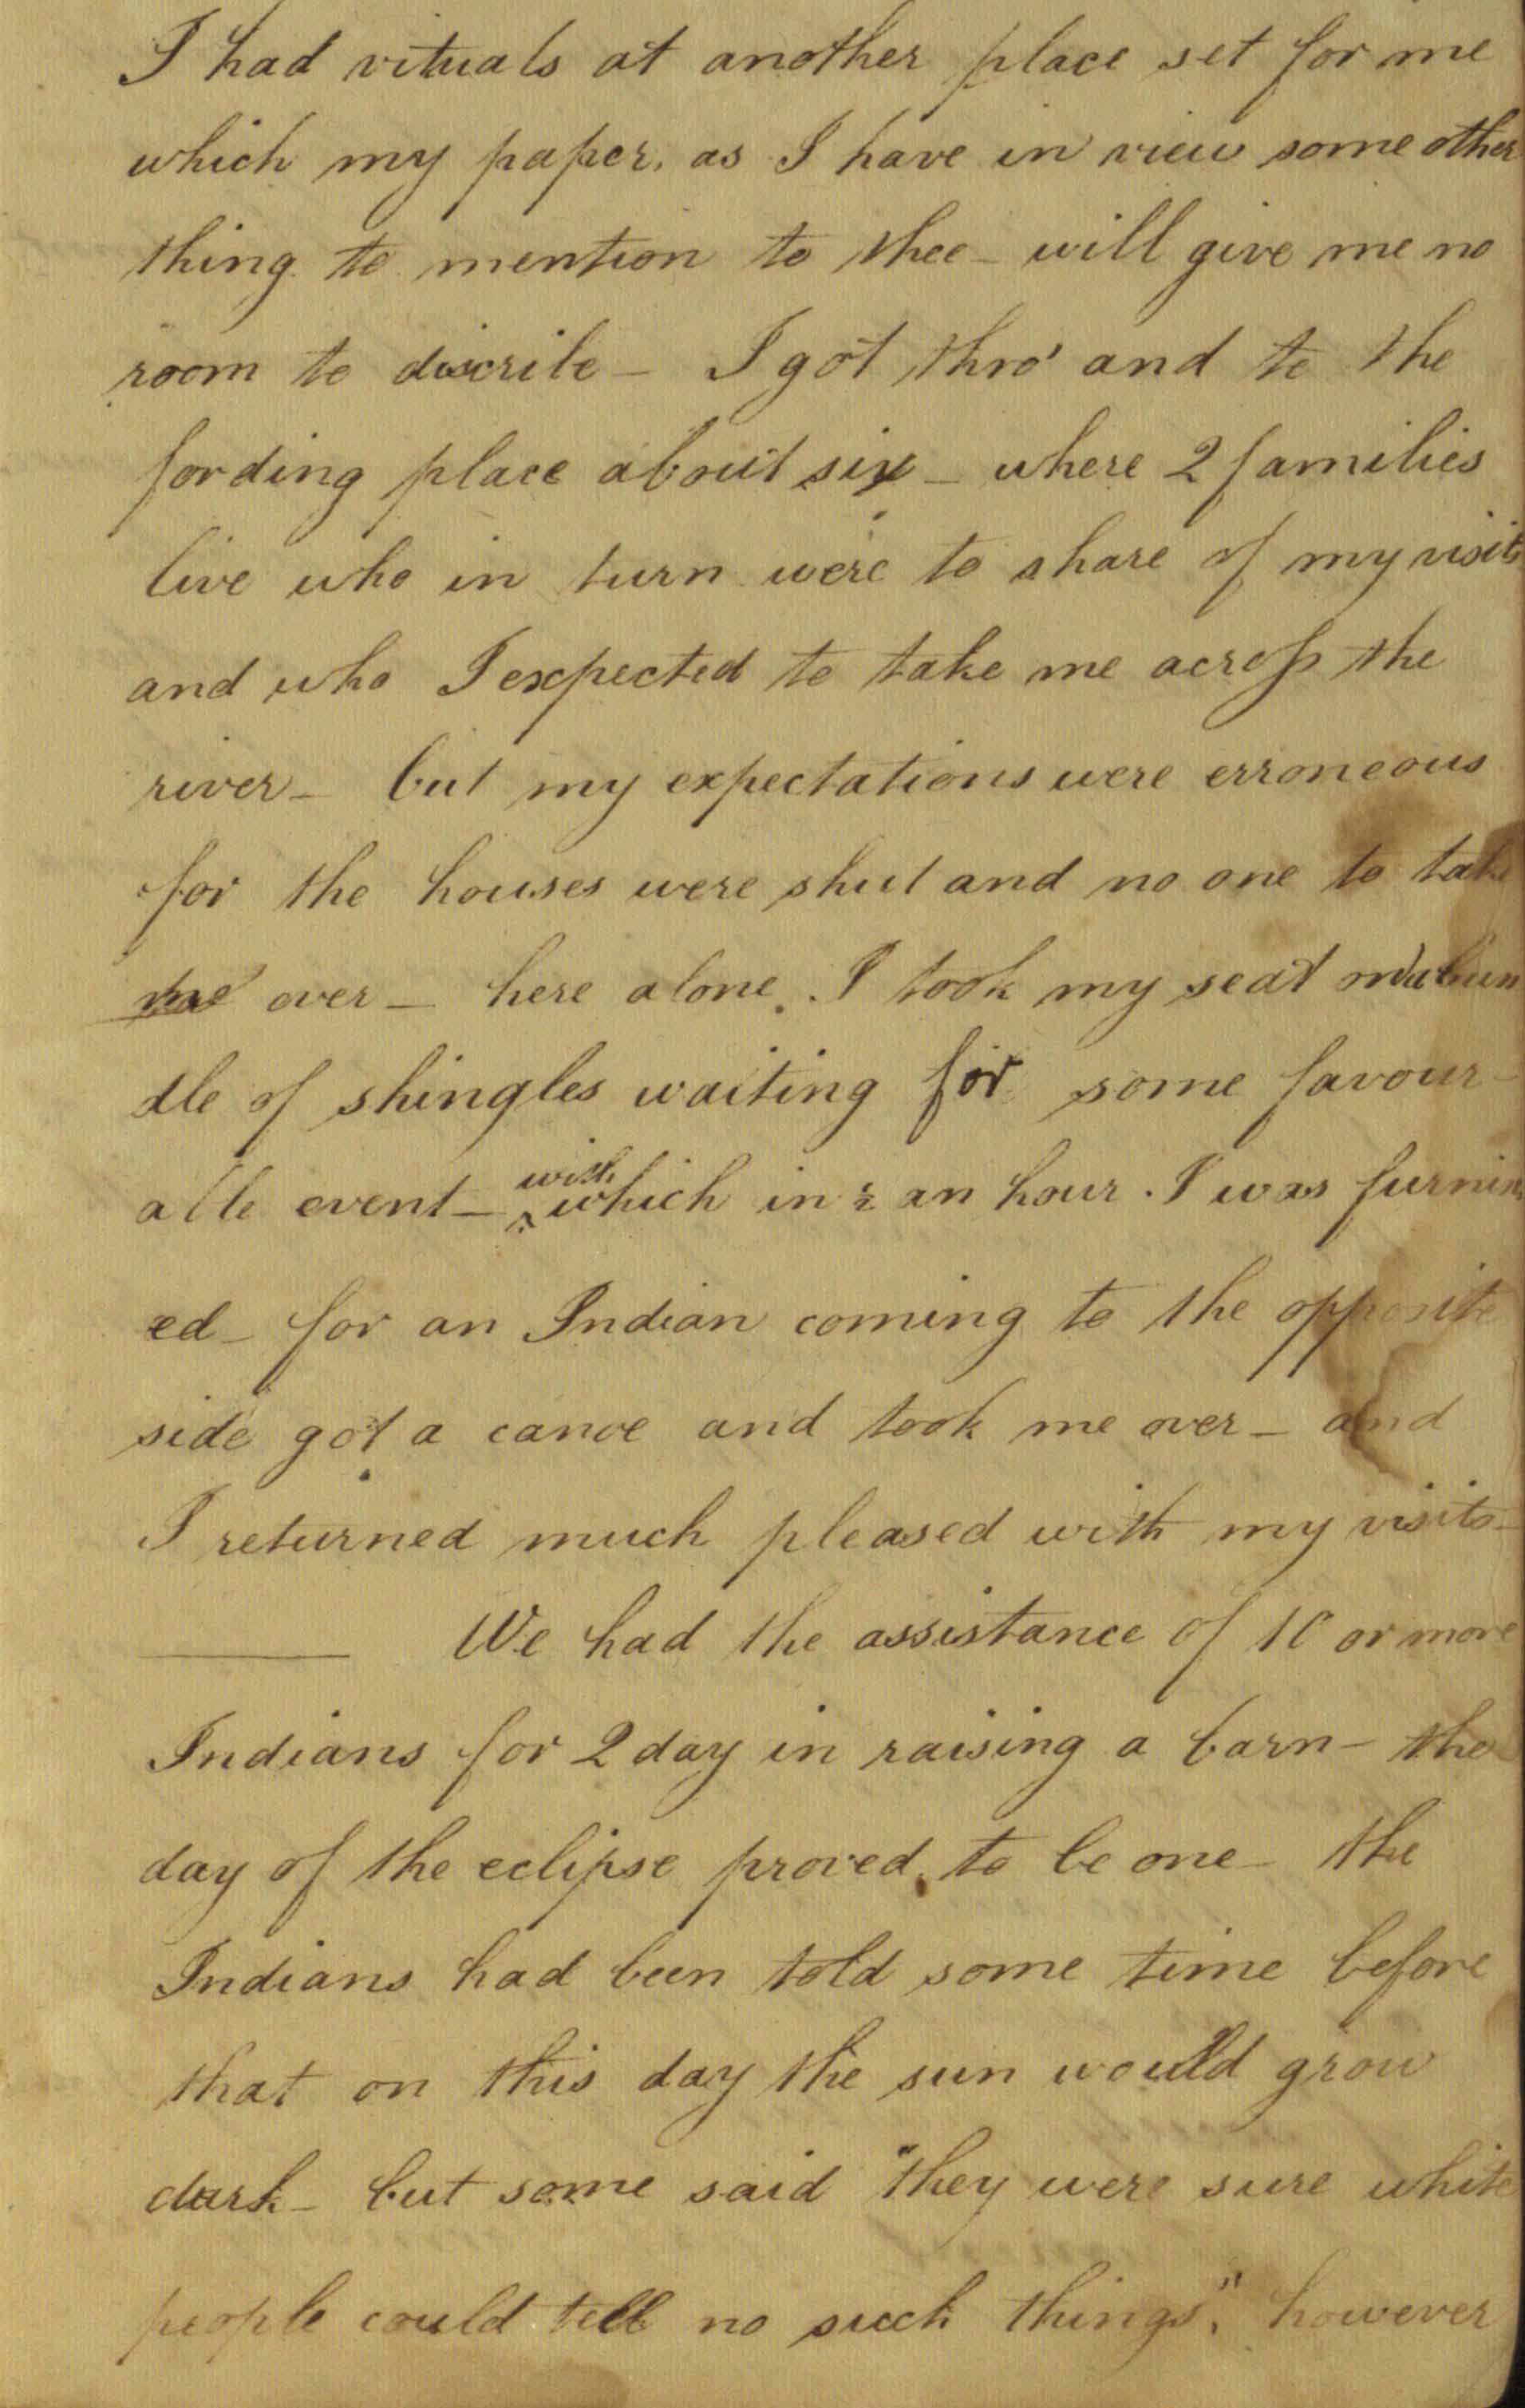 I had vituals at another place set for me
which my paper, as I have in view some other
thing to mention to thee – will give me no
room to discribe – I got thro' and to the
fording place about six – where 2 families
live who in turn were to share of my visits
and who I expected to take me across the
river – but my expectations were erroneous
for the houses were shut and no one to take
me over – here alone. I took my seat on a bun
dle of shingles waiting for some favour-
able event – with which in ½ an hour. I was furnin
ed – for an Indian coming to the opposite
side got a canoe and took me over – and
I returned much pleased with my visits –
We had the assistance of 10 or more
Indians for 2 day in raising a barn – the
day of the eclipse proved to be one – the
Indians had been told some time before
that on this day the sun would grow
dark – but some said "they were sure white
people could tell no such things", however